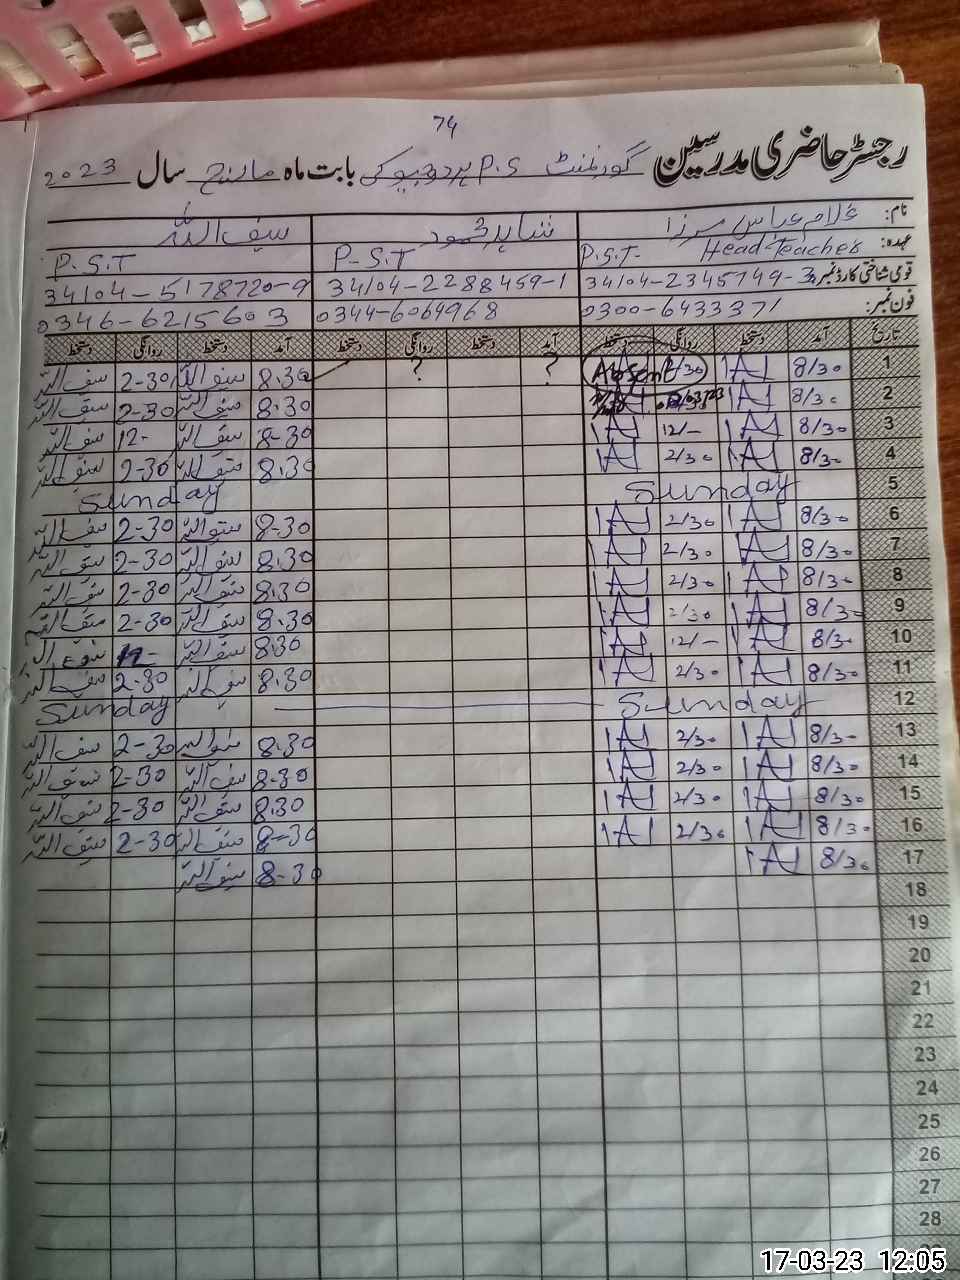 74
رجسٹر حاضری مدرسین گورنمنٹ P.S بابت ماہ مارچ سال 2023
نام: غلام عباس مرزا شاہد محمود سیف اللہ
عہدہ: P.S.T- Head Teacher P-S.T P.S.T
قومی شناختی کارڈ نمبر: 34104-2345749-3 34104-2288459-1 34104-5178720-9
فون نمبر: 0300-6433371 0344-6064968 0346-6215603
تاریخ آمد دستخط روانگی دستخط آمد دستخط روانگی دستخط آمد دستخط روانگی دستخط
1 8/30 2/30 Absent ? ? 8.30 سیف اللہ 2-30 سیف اللہ
2 8/30 8.30 سیف اللہ 2-30 سیف اللہ
3 8/30 12/- 8-30 سیف اللہ 12- سیف اللہ
4 8/30 2/30 8.30 سیف اللہ 2-30 سیف اللہ
5 Sunday Sunday
6 8/30 2/30 8-30 سیف اللہ 2-30 سیف اللہ
7 8/30 2/30 8.30 سیف اللہ 2-30 سیف اللہ
8 8/30 2/30 8.30 سیف اللہ 2-30 سیف اللہ
9 8/30 2/30 8.30 سیف اللہ 2-30 سیف اللہ
10 8/30 12/- 8.30 سیف اللہ 12- سیف اللہ
11 8/30 2/30 8.30 سیف اللہ 2-30 سیف اللہ
12 Sunday Sunday
13 8/30 2/30 8.30 سیف اللہ 2-30 سیف اللہ
14 8/30 2/30 8-30 سیف اللہ 2-30 سیف اللہ
15 8/30 2/30 8.30 سیف اللہ 2-30 سیف اللہ
16 8/30 2/30 8-30 سیف اللہ 2-30 سیف اللہ
17 8/30 8-30 سیف اللہ
18
19
20
21
22
23
24
25
26
27
28
17-03-23 12:05